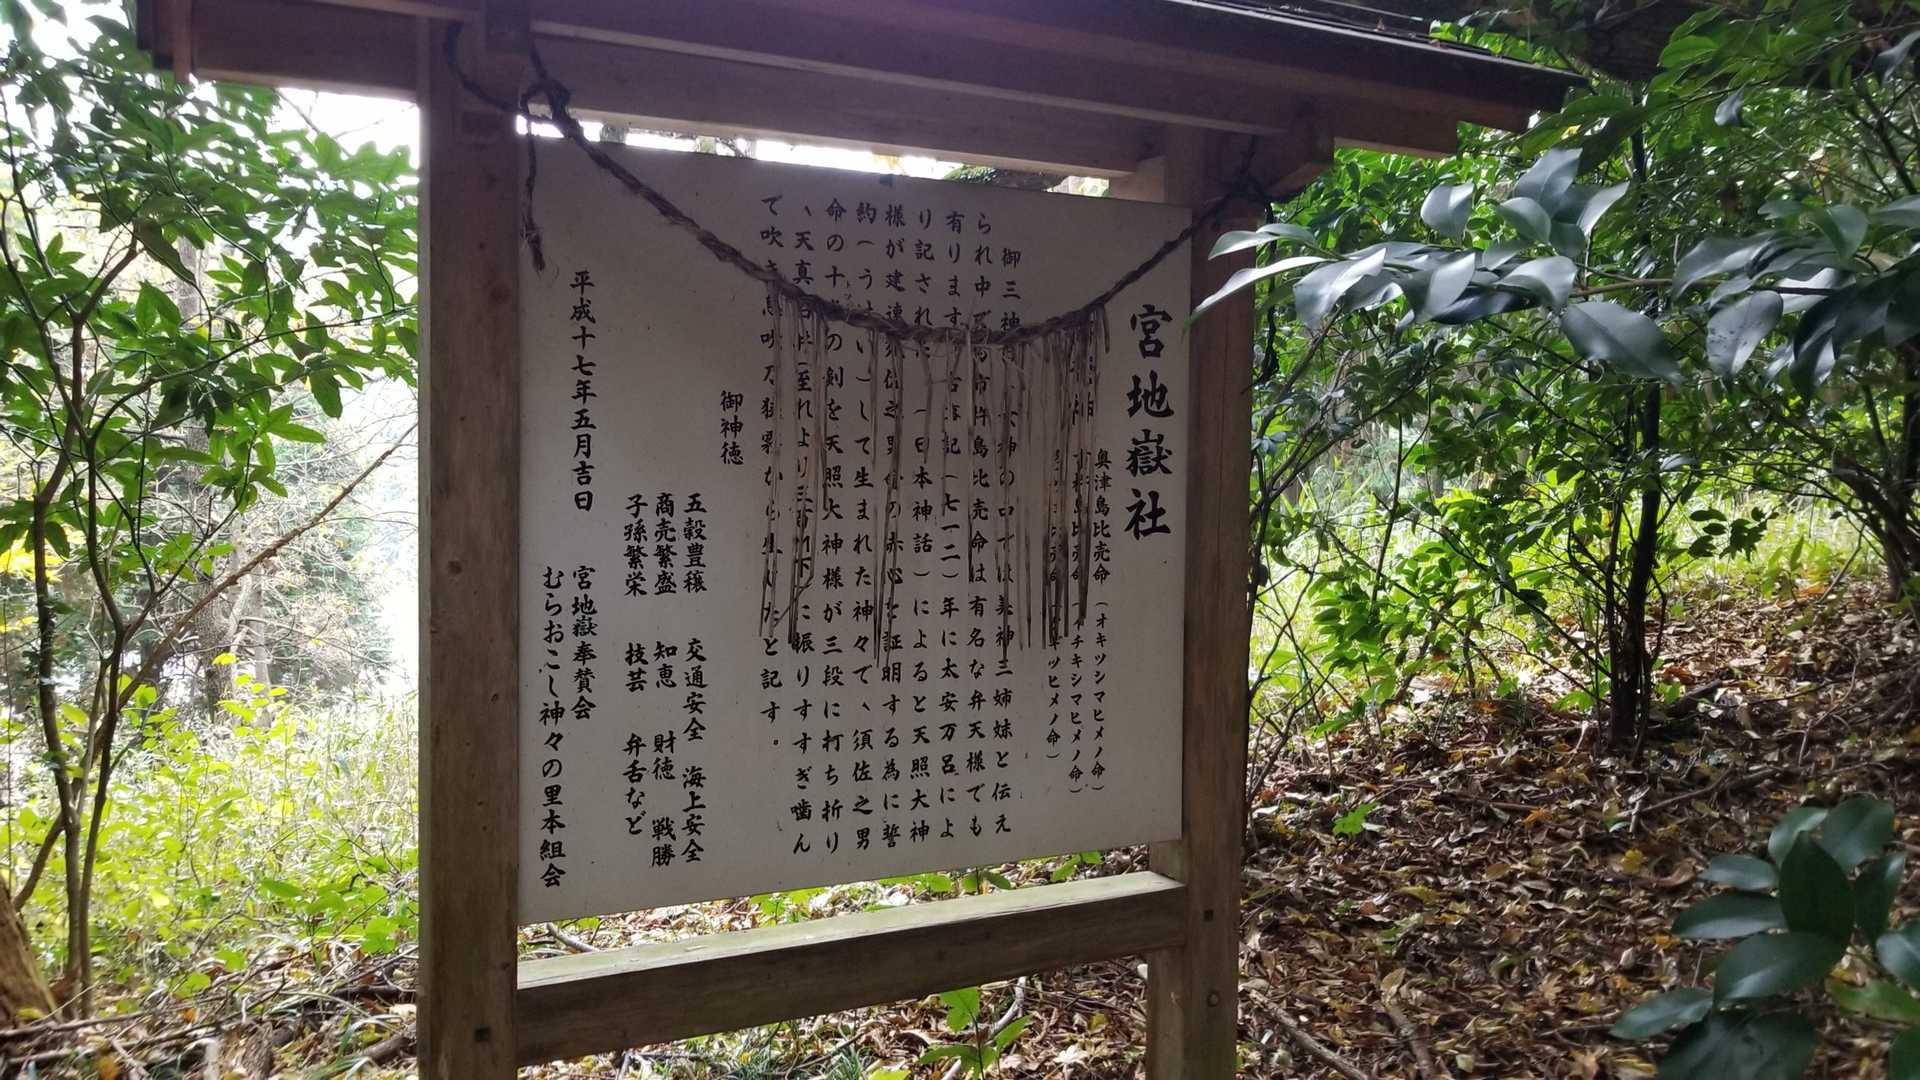 宮地嶽社
奥津島比売命(オキツシマヒメノ命)
島比売命(イチキシマヒメノ命)
ツヒメノ命)
御三神 女神の中では美神三姉妹と伝え
られ中で 市杵島比売命は有名な弁天様でも
有ります 古事記(七一二)年に太安万呂によ
り記され (日本神話)によると天照大神
様が建速須佐之男命の赤心を証明する為に誓
約(うけい)して生まれた神々で、須佐之男
命の十 の剣を天照大神様が三段に打ち折り
、天真名井 に振りすすぎ噛ん
で吹き 吹乃狭霧から生 たと記す。
御神徳
五穀豊穣 交通安全 海上安全
商売繁盛 知恵 財徳 戦勝
子孫繁栄 技芸 弁舌など
平成十七年五月吉日
宮地嶽奉賛会
むらおこし神々の里本組会